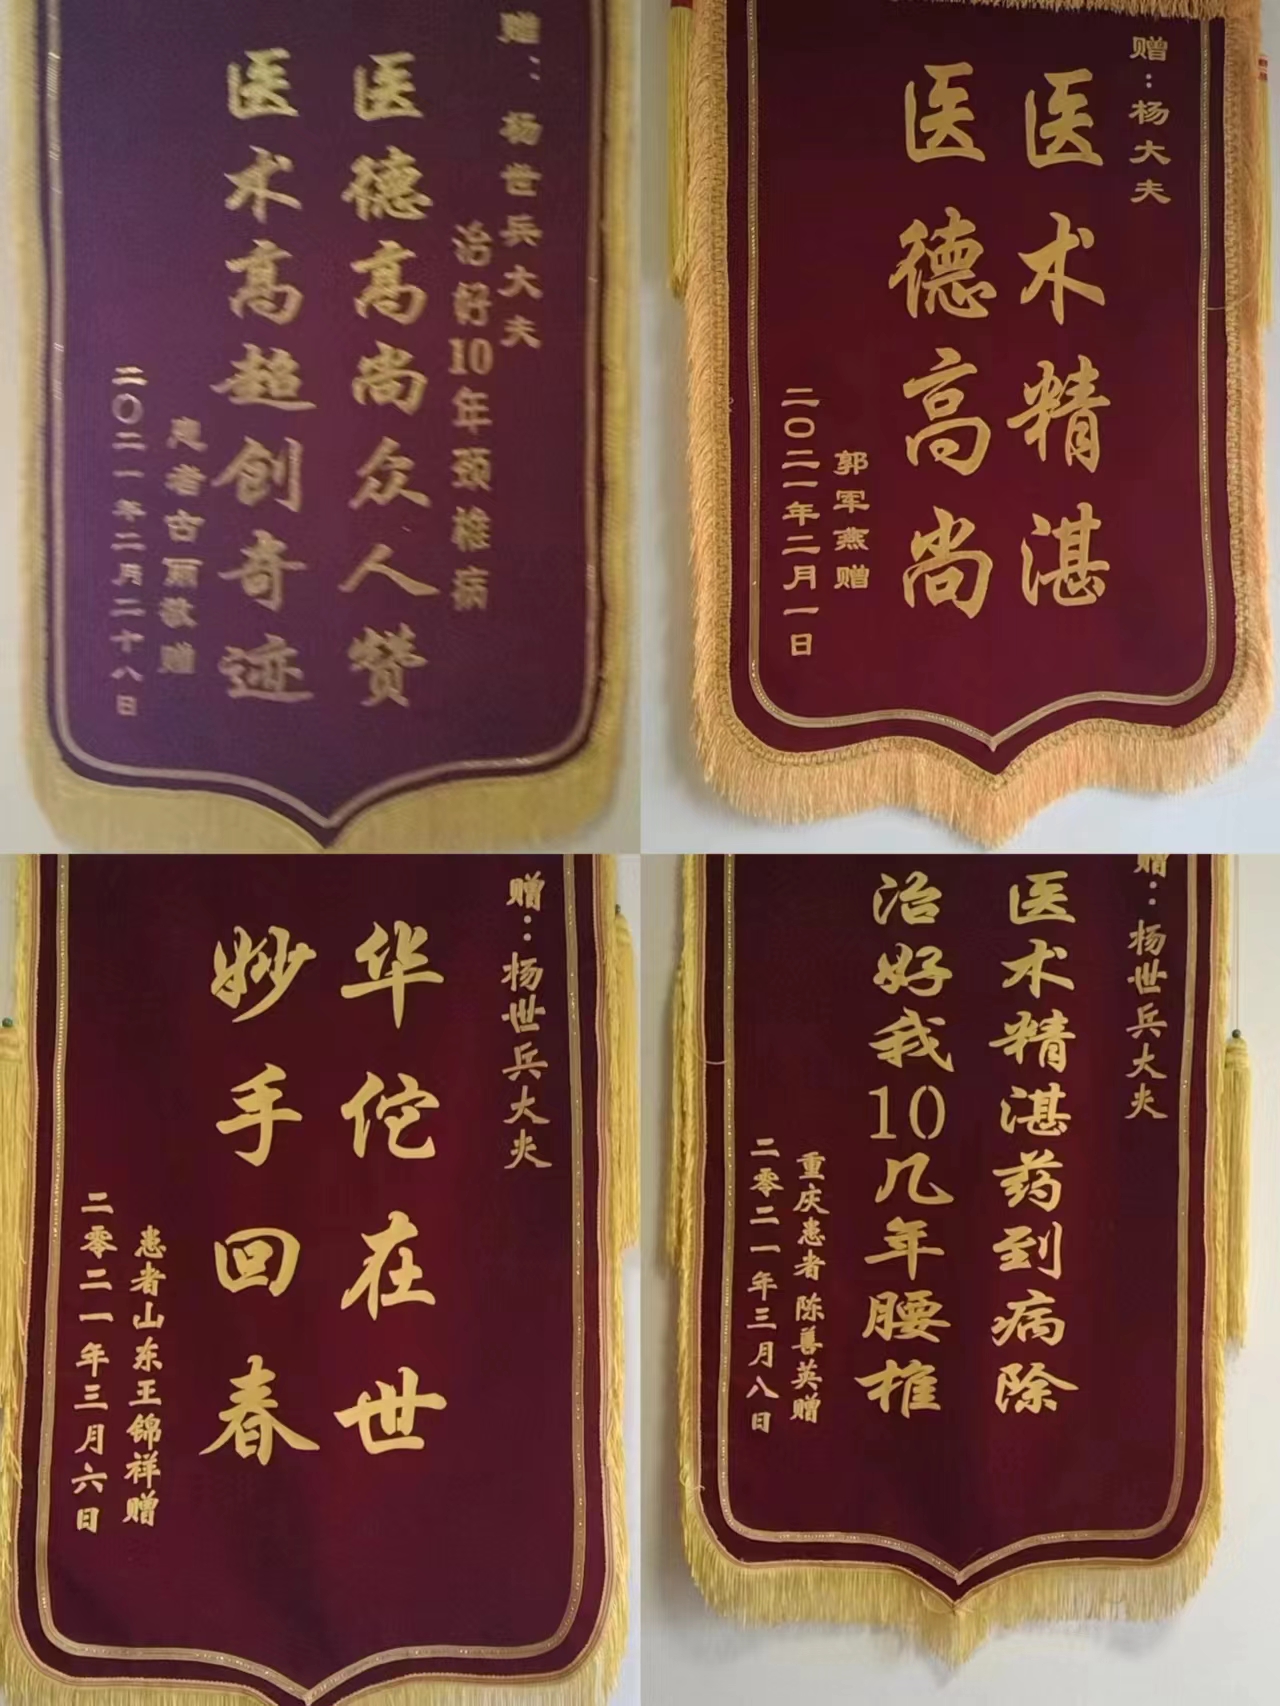 赠：杨世兵大夫
治好10年颈椎病
医德高尚众人赞
医术高超创奇迹
患者古丽敬赠
二〇二一年二月二十八日
赠：杨大夫
医术精湛
医德高尚
郭军燕赠
二〇二一年二月一日
赠：杨世兵大夫
华佗在世
妙手回春
患者山东王锦祥赠
二零二一年三月六日
赠：杨世兵大夫
医术精湛药到病除
治好我10几年腰椎
重庆患者 陈善英赠
二零二一年三月八日